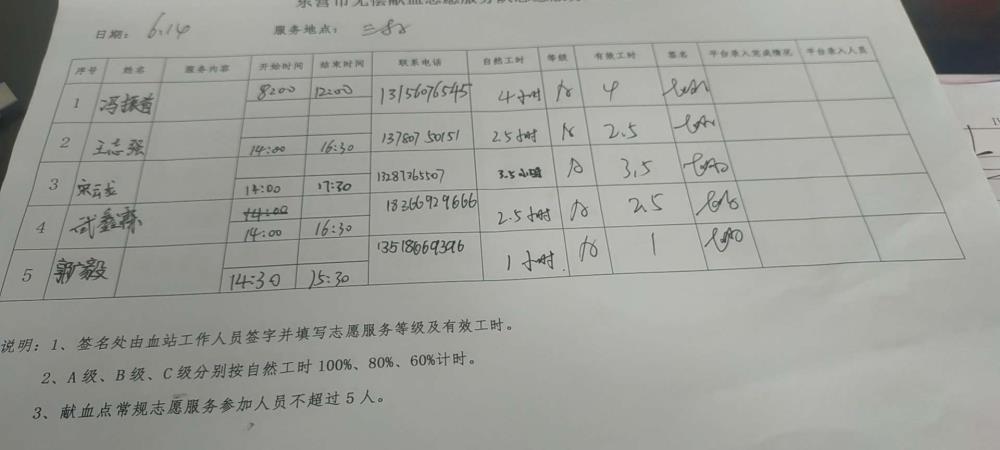 东营市无偿献血志愿服务队志愿服务
日期： 6.14 服务地点：
序号 姓名 服务内容 开始时间 结束时间 联系电话 自然工时 等级 有效工时 签名 平台录入完成情况 平台录入人员
1 冯振首 8:00 12:00 13156076545 4小时 A 4
2 王志强 14:00 16:30 13780750151 2.5小时 A 2.5
3 宋云龙 14:00 17:30 13287365507 3.5小时 A 3.5
14:00
4 武鑫霖 14:00 16:30 18366929666 2.5小时 A 2.5
5 郭广毅 14:30 15:30 13518669396 1小时. A 1
说明：1、签名处由血站工作人员签字并填写志愿服务等级及有效工时。
2、A级、B级、C级分别按自然工时100%、80%、60%计时。
3、献血点常规志愿服务参加人员不超过5人。